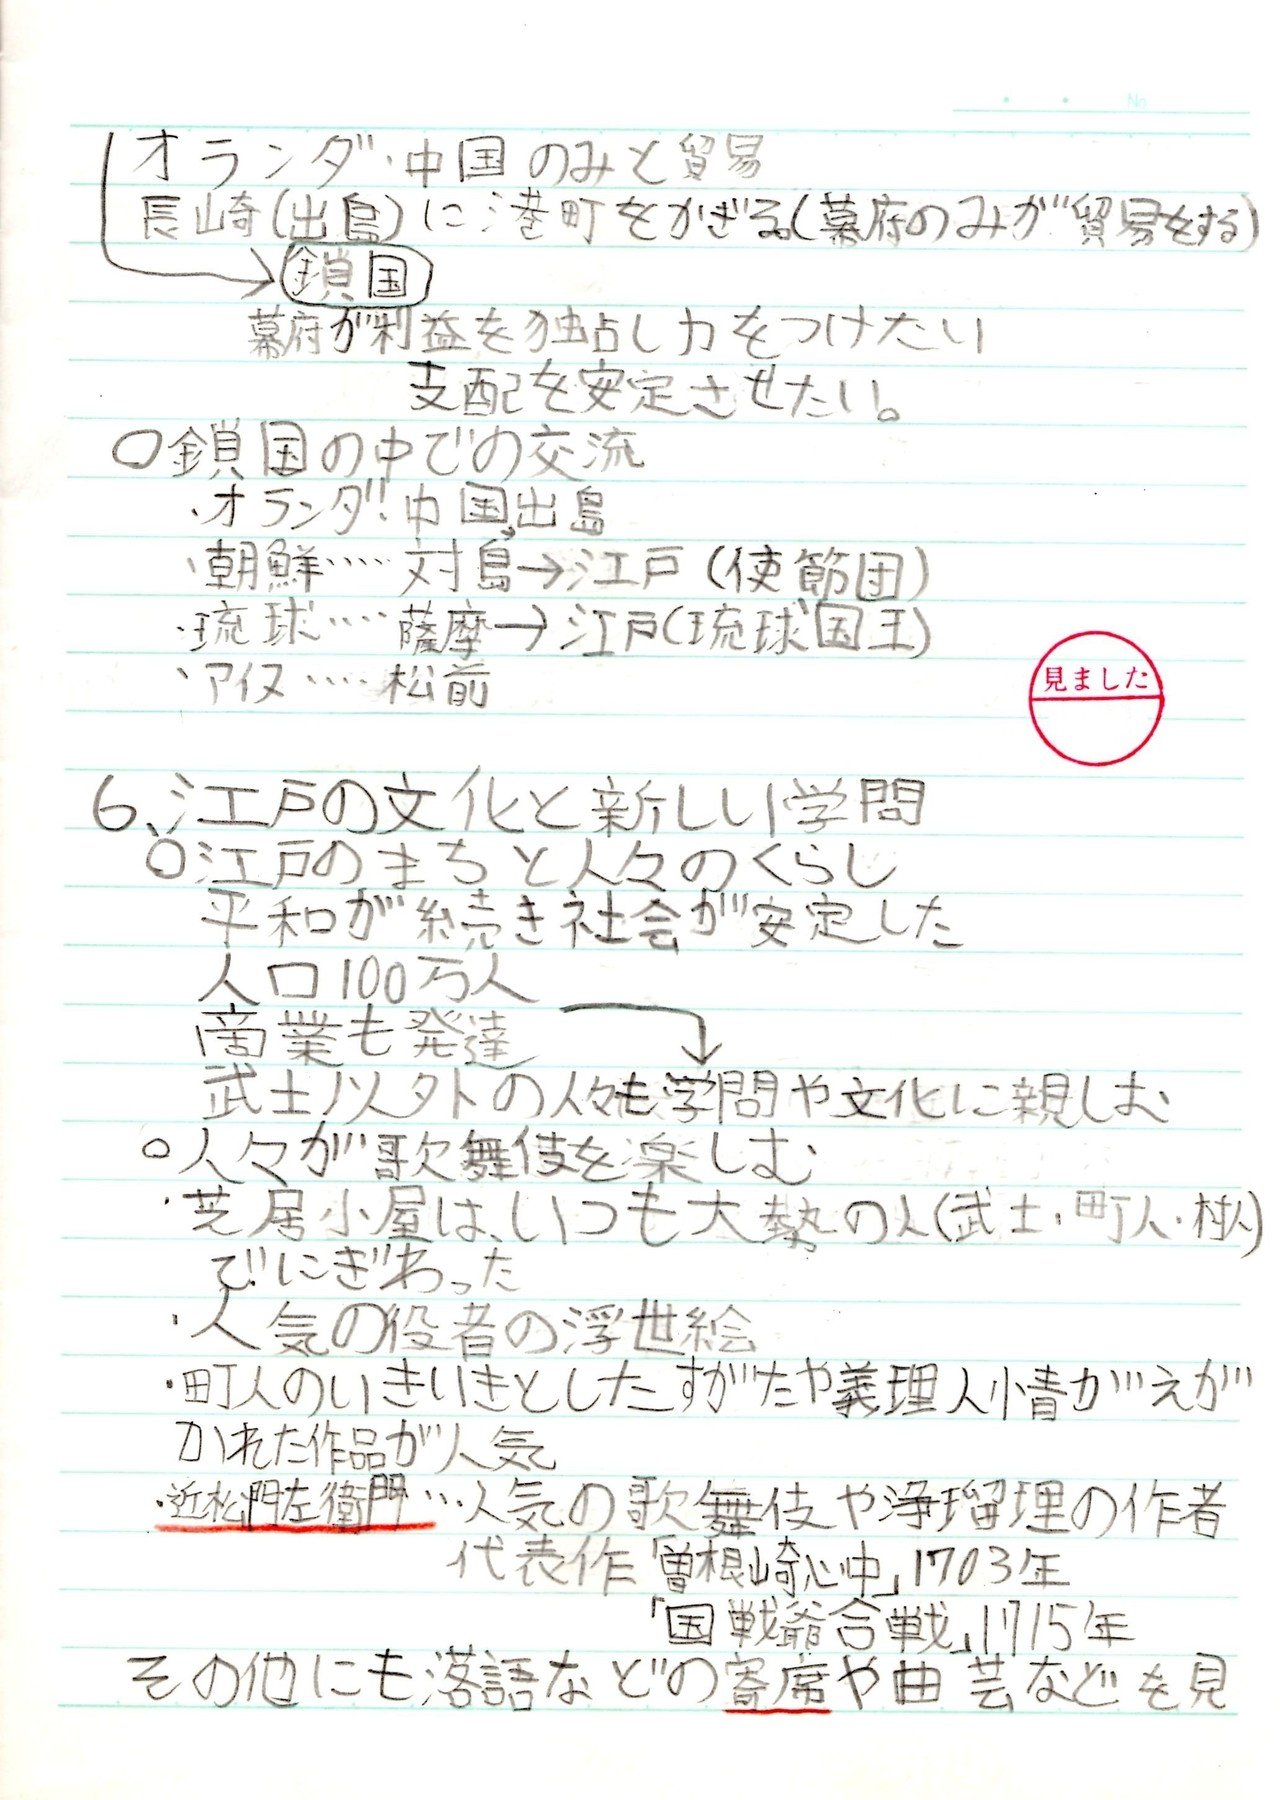 No
オランダ・中国のみと貿易
長崎(出島)に港町をかぎる(幕府のみが貿易をする)
鎖国
幕府が利益を独占し力をつけたい
支配を安定させたい。
○鎖国の中での交流
・オランダ・中国、出島
・朝鮮……対島→江戸(使節団)
・琉球……薩摩→江戸(琉球国王)
・アイヌ……松前
見ました
6、江戸の文化と新しい学問
○江戸のまちと人々のくらし
平和が続き社会が安定した
人口100万人
商業も発達
武士以外の人々も学問や文化に親しむ
○人々が歌舞伎を楽しむ
・芝居小屋は、いつも大勢の人(武士・町人・村人)
でにぎわった
・人気の役者の浮世絵
・町人のいきいきとしたすがたや義理人情がえが
かれた作品が人気
・近松門左衛門…人気の歌舞伎や浄瑠理の作者
代表作「曽根崎心中」1703年
「国戦爺合戦」1715年
その他にも落語などの寄席や曲芸などを見